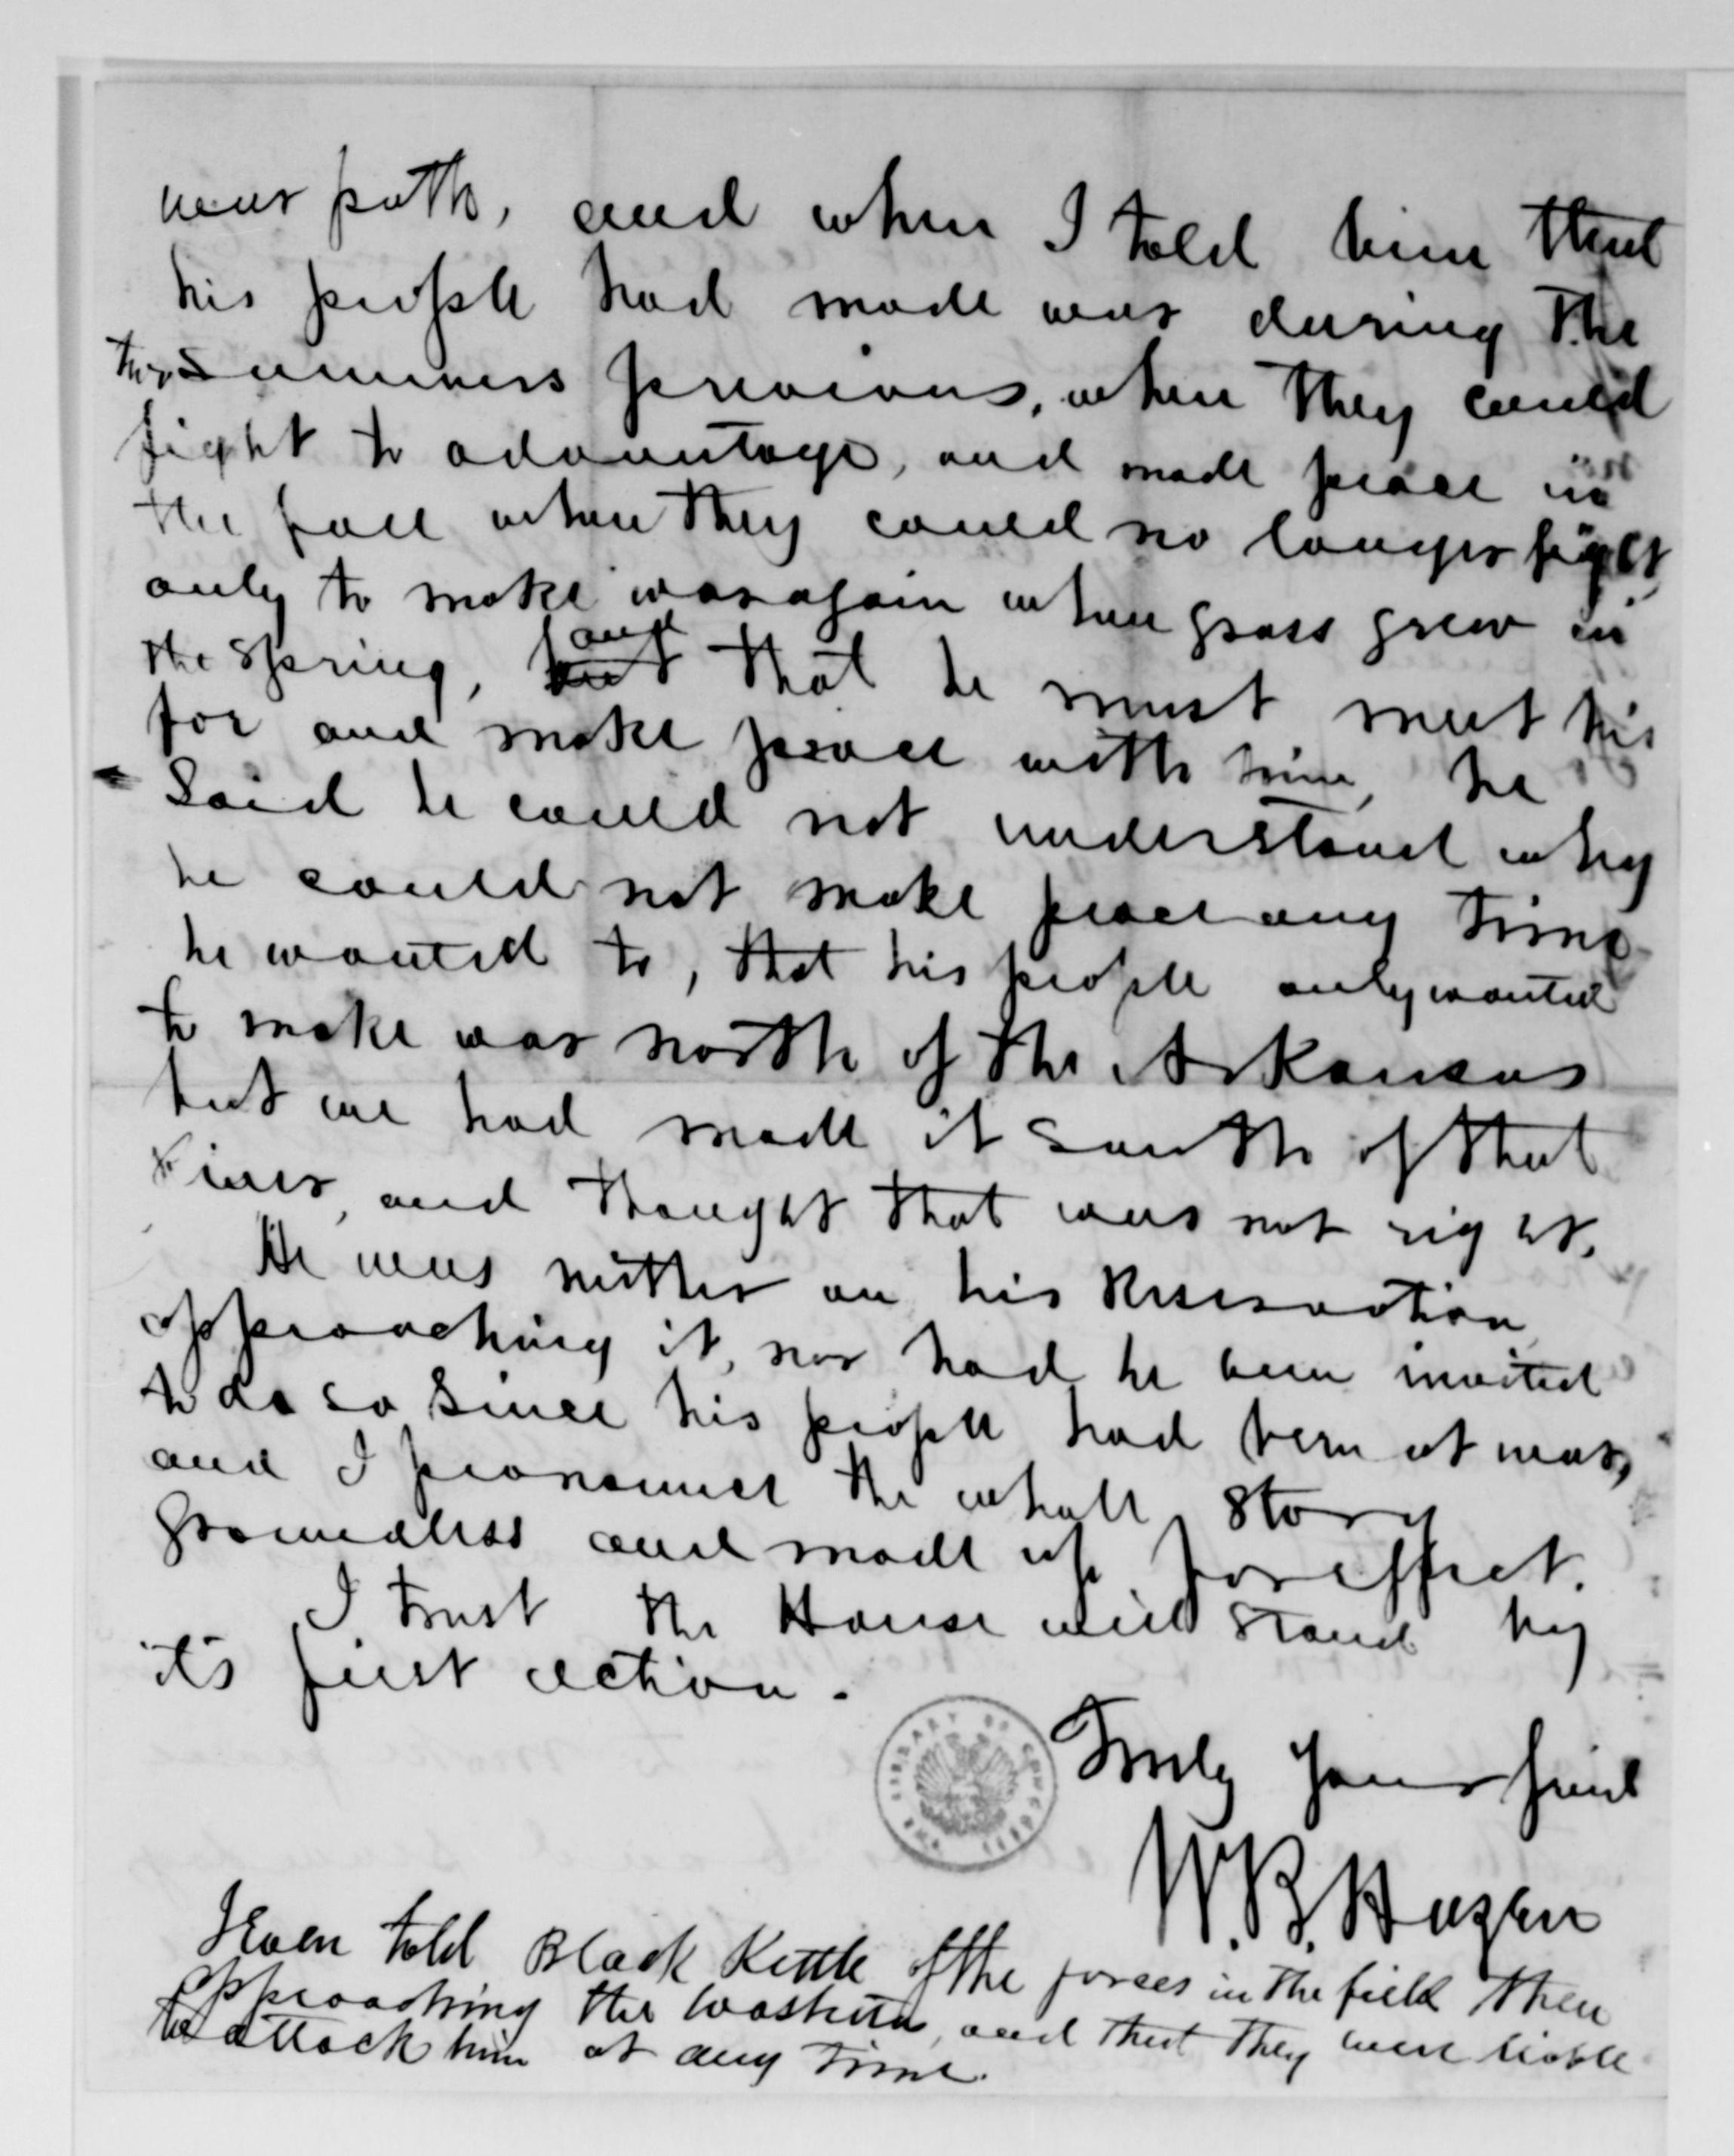 war path, and when I told him that
his people had made war during the
two summers previous, when they could
fight to advantage, and made peace in
the fall when they could no longer fight,
only to make war again when grass grew in
the spring, but and that he must meet his
foe and make peace with him, he
said he could not understand why
he could not make peace any time
he wanted to, that his people only wanted
to make war north of the Arkansas
but we had made it south of that
river, and thought that was not right.
He was neither on his Reservation
approaching it, nor had he been invited
to do so since his people had been at war,
and I pronounce the whole story
groundless and made up for effect.
I trust the House will stand by
its first action.
Truly your friend
W.B. Hazen
I even told Black Kettle of the forces in the field then
approaching the Washita, and that they were liable
to attack him at any time.